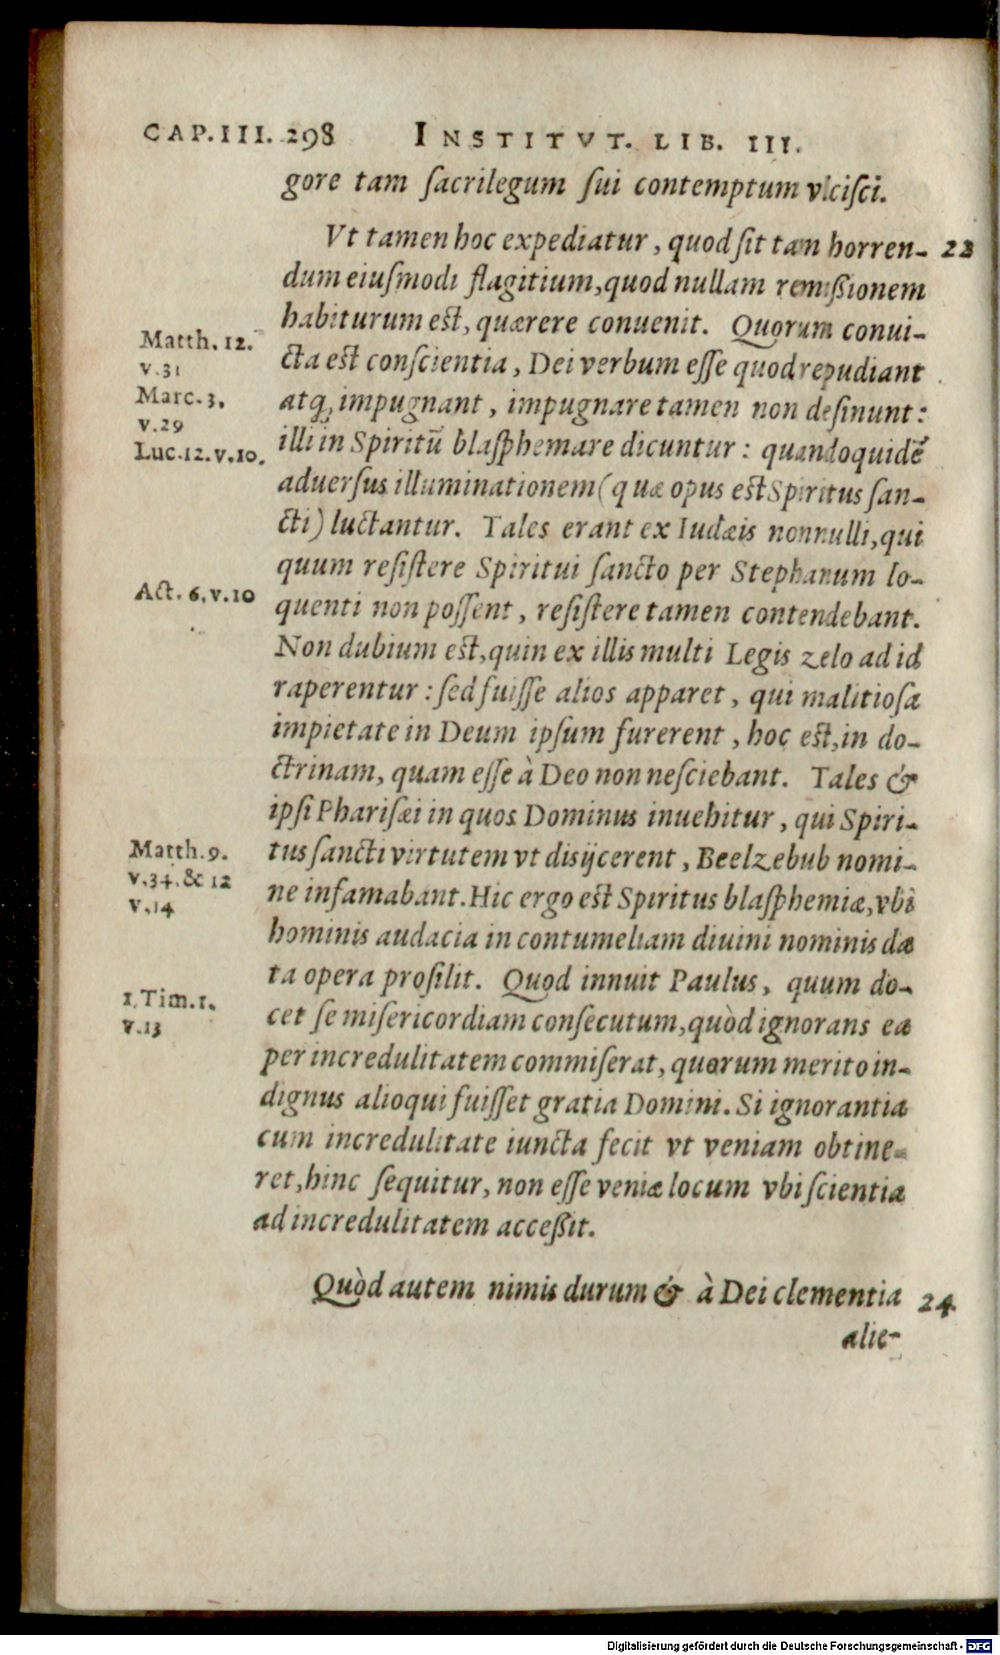 CAP.III. 298 INSTITVT. LIB. III.
gore tam ſacrilegum ſui contemptum vlciſci.
Vt tamen hoc expediatur, quod ſit tam horren- 23
dum eiuſmodi flagitium, quod nullam remißionem
habiturum est, quærere conuenit. Quorum conui-
Matth. 12.
v.31
cta est conſcientia, Dei verbum eſſe quod repudiant
Marc. 3.
v.29
atq; impugnant, impugnare tamen non deſinunt:
Luc.12.v.10.
illi in Spiritū blaſphemare dicuntur: quandoquidē
aduerſus illuminationem (quæ opus est Spiritus ſan-
cti) luctantur. Tales erant ex Iudæis nonnulli, qui
quum reſiſtere Spiritui ſancto per Stephanum lo-
Act. 6.v.10
quenti non poſſent, reſiſtere tamen contendebant.
Non dubium est, quin ex illis multi Legis zelo ad id
raperentur: ſed fuiſſe alios apparet, qui malitioſa
impietate in Deum ipſum furerent, hoc est, in do-
ctrinam, quam eſſe à Deo non neſciebant. Tales &
ipſi Phariſæi in quos Dominus inuehitur, qui Spiri-
Matth.9.
v.34.& 12
v.14
tus ſancti virtutem vt disijcerent, Beelzebub nomi-
ne infamabant. Hic ergo est Spiritus blaſphemiæ, vbi
hominis audacia in contumeliam diuini nominis da
ta opera proſilit. Quod innuit Paulus, quum do-
1.Tim.1.
v.13
cet ſe miſericordiam conſecutum, quòd ignorans ea
per incredulitatem commiſerat, quorum merito in-
dignus alioqui fuiſſet gratia Domini. Si ignorantia
cum incredulitate iuncta fecit vt veniam obtine-
ret, hinc ſequitur, non eſſe veniæ locum vbi ſcientia
ad incredulitatem acceßit.
Quòd autem nimis durum & à Dei clementia 24
alie-
Digitalisierung gefördert durch die Deutsche Forschungsgemeinschaft - DFG